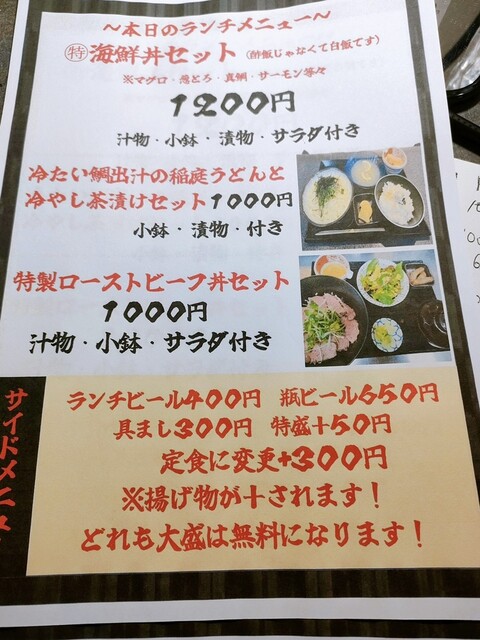 ～本日のランチメニュー～
㊕海鮮丼セット（酢飯じゃなくて白飯です）
※マグロ・葱とろ・真鯛・サーモン等々
1200円
汁物・小鉢・漬物・サラダ付き
冷たい鯛出汁の稲庭うどんと
冷やし茶漬けセット1000円
小鉢・漬物・付き
特製ローストビーフ丼セット
1000円
汁物・小鉢・サラダ付き
サイドメニュ
ランチビール400円 瓶ビール650円
具まし300円 特盛＋50円
定食に変更+300円
※揚げ物が＋されます！
どれも大盛は無料になります！